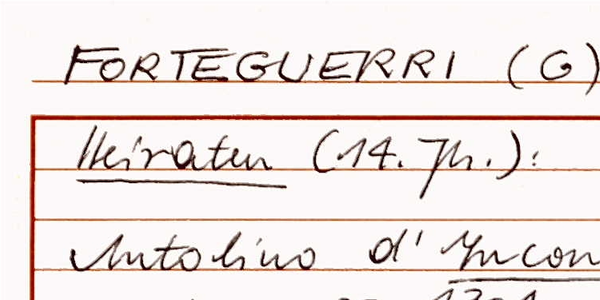 FORTEGUERRI (G)
Heiraten (14. Jh.):
Antolino d'